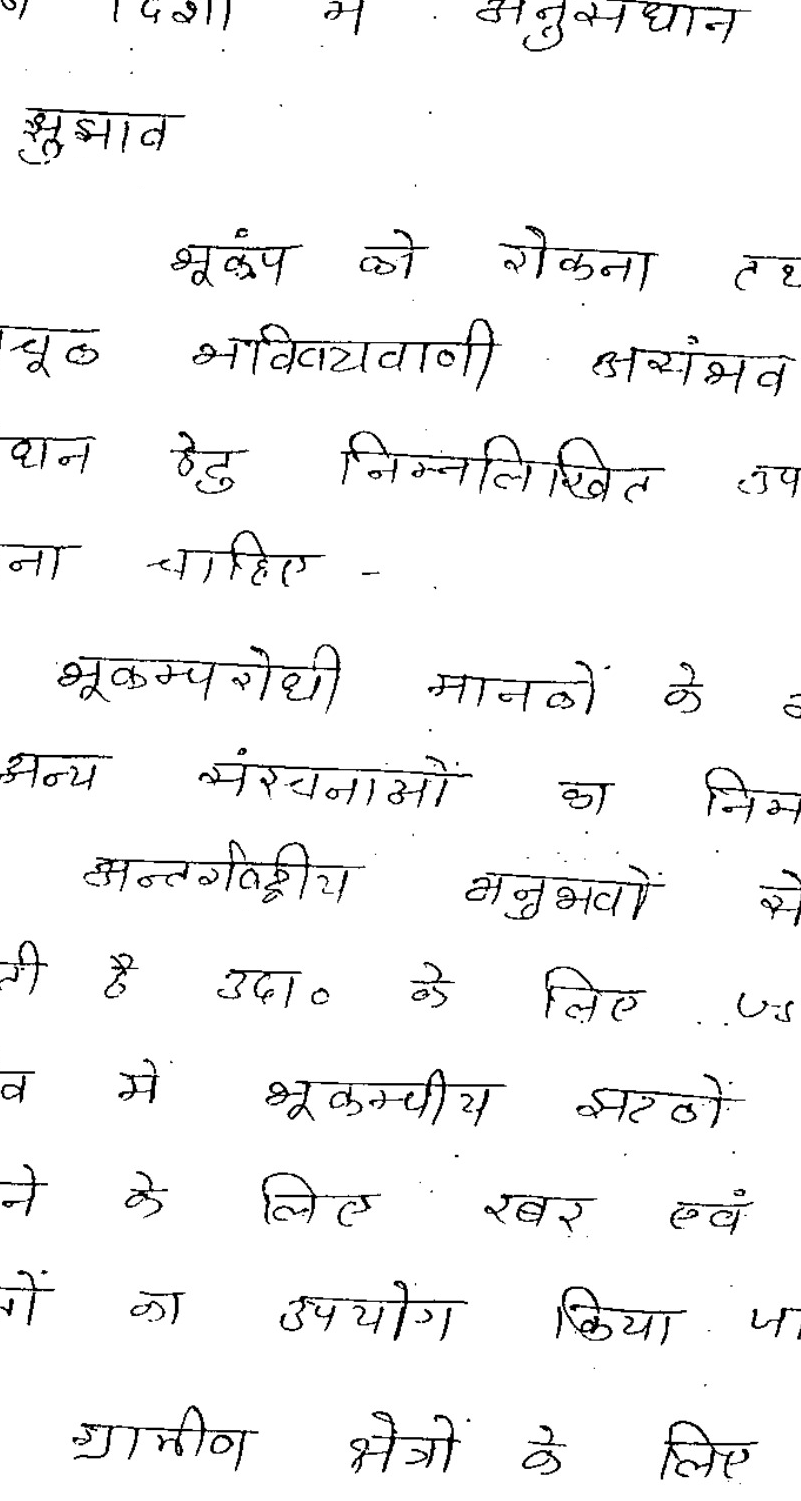 दिशा में अनुसंधान
सुझाव
भूकंप को रोकना तथ
चूक भविष्यवाणी असंभव
धन हेतु निम्नलिखित उप
ना चाहिए -
भूकम्परोधी मानकों के
अन्य संरचनाओं का निम
अन्तर्राष्ट्रीय अनुभवों से
ती है उदा० के लिए
व में भूकम्पीय झटकों
ने के लिए रबर एवं
गों का उपयोग किया जा
ग्रामीण क्षेत्रों के लिए